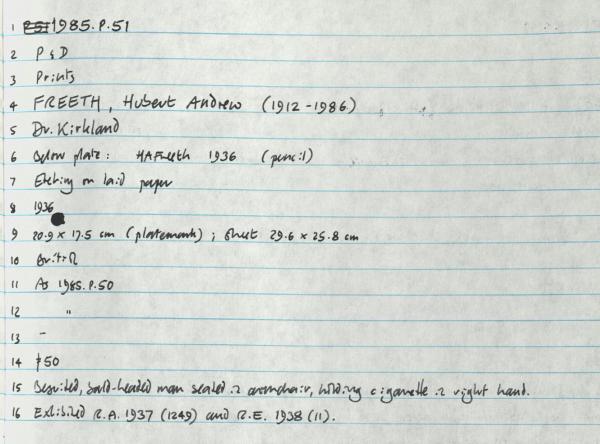 1 P.51 1985.P.51
2 P & D
3 Prints
4 FREETH, Hubert Andrew (1912-1986)
5 Dr. Kirkland
6 Below plate: HAFreeth 1936 (pencil)
7 Etching on laid paper
8 1936
9 20.9 x 17.5 cm (platemark); sheet 29.6 x 25.8 cm
10 British
11 As 1985.P.50
12 "
13 -
14 50
15 Besuited, bald-headed man seated in armchair, holding cigarette in right hand.
16 Exhibited R.A. 1937 (1249) and R.E. 1938 (11).